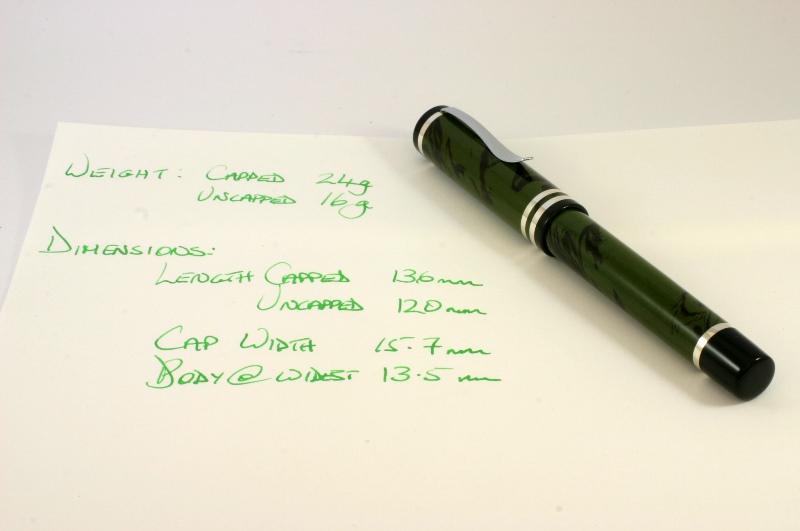 WEIGHT: CAPPED 24g
UNCAPPED 16g
DIMENSIONS:
LENGTH CAPPED 136mm
UNCAPPED 120mm
CAP WIDTH 15.7mm
BODY @ WIDEST 13.5mm